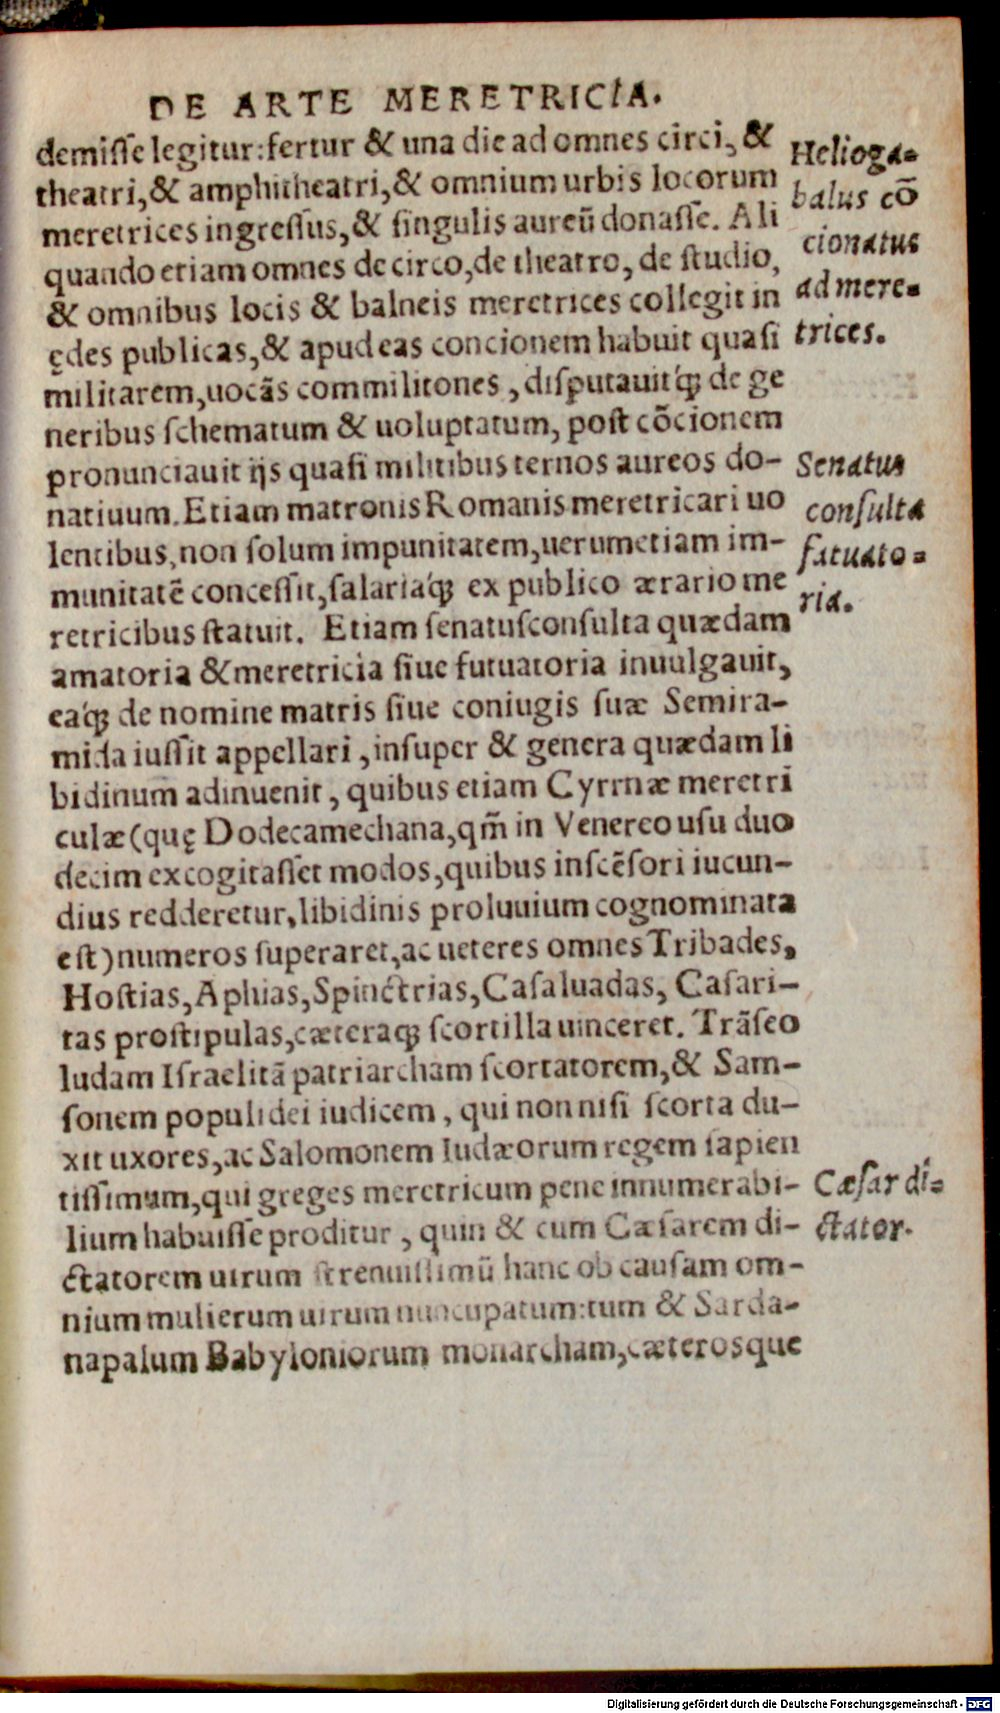 DE ARTE MERETRICIA.
demisſe legitur:fertur & una die ad omnes circi, &
theatri,& amphitheatri,& omnium urbis locorum
meretrices ingreſſus,& ſingulis aureū donaſſe. Ali
quando etiam omnes de circo,de theatro, de ſtudio,
& omnibus locis & balneis meretrices collegit in
ędes publicas,& apud eas concionem habuit quaſi
militarem,uocãs commilitones , diſputauitq́ꝫ de ge
neribus ſchematum & uoluptatum, poſt cõcionem
pronunciauit ijs quaſi militibus ternos aureos do-
natiuum. Etiam matronis Romanis meretricari uo
lentibus, non ſolum impunitatem,uerumetiam im-
munitatẽ conceſſit,ſalariaq́ꝫ ex publico ærario me
retricibus ſtatuit. Etiam ſenatuſconſulta quædam
amatoria & meretricia ſiue futuatoria inuulgauit,
eaq́ꝫ de nomine matris ſiue coniugis ſuæ Semira-
mida iuſſit appellari , inſuper & genera quædam li
bidinum adinuenit , quibus etiam Cyrrnæ meretri
culæ (quę Dodecamechana,qm̃ in Venereo uſu duo
decim excogitaſſet modos,quibus inſcẽſori iucun-
dius redderetur,libidinis proluuium cognominata
eſt) numeros ſuperaret,ac ueteres omnes Tribades,
Hoſtias, Aphias, Spinctrias, Caſaluadas, Caſari-
tas proſtipulas,cæteraqꝫ ſcortilla uinceret. Trãſeo
Iudam Iſraelitã patriarcham ſcortatorem,& Sam-
ſonem populi dei iudicem , qui non niſi ſcorta du-
xit uxores,ac Salomonem Iudæorum regem ſapien
tiſſimum,qui greges meretricum pene innumerabi-
lium habuiſſe proditur , quin & cum Cæſarem di-
ctatorem uirum ſtrenuiſſimũ hanc ob cauſam om-
nium mulierum uirum nuncupatum:tum & Sarda-
napalum Babyloniorum monarcham,cæterosque
Helioga-
balus cō
cionatus
ad mere-
trices.
Senatus
conſulta
futuato-
ria.
Cæſar di-
ctator.
Digitalisierung gefördert durch die Deutsche Forschungsgemeinschaft - DFG